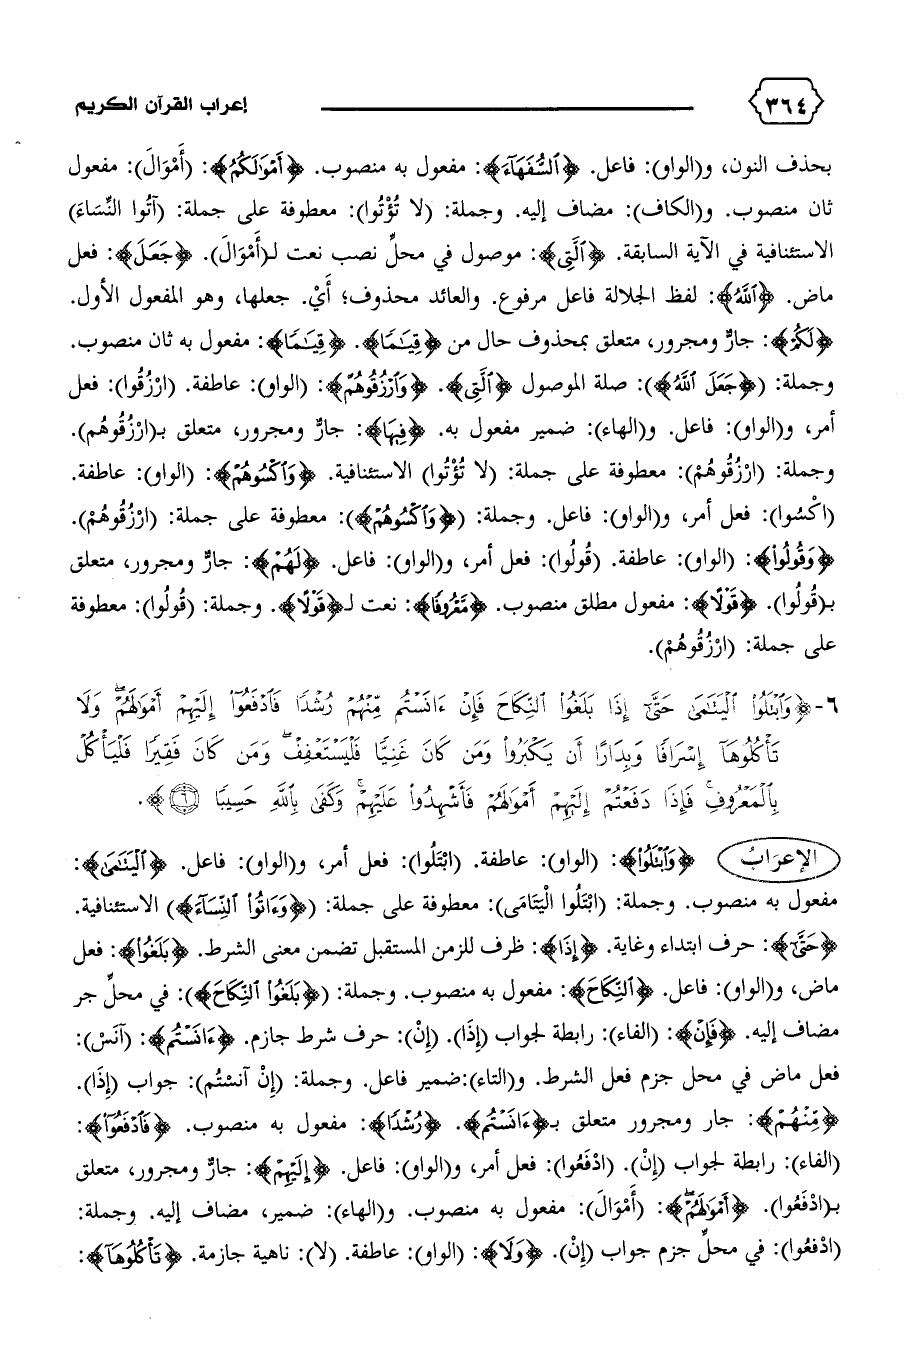 ٣٦٤ إعراب القرآن الكريم
بحذف النون، و(الواو): فاعل. ﴿ٱلسُّفَهَآءَ﴾: مفعول به منصوب. ﴿أَمْوَٰلَكُمُ﴾: (أَمْوَالَ): مفعول
ثان منصوب. و(الكاف): مضاف إليه. وجملة: (لا تُؤْتُوا): معطوفة على جملة: (آتُوا النِّسَاءَ)
الاستئنافية في الآية السابقة. ﴿ٱلَّتِى﴾: موصول في محلِّ نصب نعت لـ(أَمْوَالَ). ﴿جَعَلَ﴾: فعل
ماض. ﴿ٱللَّهُ﴾: لفظ الجلالة فاعل مرفوع. والعائد محذوف؛ أَيْ. جعلها، وهو المفعول الأول.
﴿لَكُمْ﴾: جارٌّ ومجرور، متعلق بمحذوف حال من ﴿قِيَٰمًا﴾. ﴿قِيَٰمًا﴾: مفعول به ثان منصوب.
وجملة: (﴿جَعَلَ ٱللَّهُ﴾): صلة الموصول ﴿ٱلَّتِى﴾. ﴿وَٱرْزُقُوهُمْ﴾: (الواو): عاطفة. (ارْزُقُوا): فعل
أمر، و(الواو): فاعل. و(الهاء): ضمير مفعول به. ﴿فِيهَا﴾: جارٌّ ومجرور، متعلق بـ(ارْزُقُوهُم).
وجملة: (ارْزُقُوهُمْ): معطوفة على جملة: (لا تُؤْتُوا) الاستئنافية. ﴿وَٱكْسُوهُمْ﴾: (الواو): عاطفة.
(اكْسُوا): فعل أمر، و(الواو): فاعل. وجملة: (﴿وَٱكْسُوهُمْ﴾): معطوفة على جملة: (ارْزُقُوهُمْ).
﴿وَقُولُوا۟﴾: (الواو): عاطفة. (قُولُوا): فعل أمر، و(الواو): فاعل. ﴿لَهُمْ﴾: جارٌّ ومجرور، متعلق
بـ(قُولُوا). ﴿قَوْلًا﴾: مفعول مطلق منصوب. ﴿مَّعْرُوفًا﴾: نعت لـ﴿قَوْلًا﴾. وجملة: (قُولُوا): معطوفة
على جملة: (ارْزُقُوهُمْ).
٦- ﴿وَٱبْتَلُوا۟ ٱلْيَتَٰمَىٰ حَتَّىٰٓ إِذَا بَلَغُوا۟ ٱلنِّكَاحَ فَإِنْ ءَانَسْتُم مِّنْهُمْ رُشْدًا فَٱدْفَعُوٓا۟ إِلَيْهِمْ أَمْوَٰلَهُمْ ۖ وَلَا
تَأْكُلُوهَآ إِسْرَافًا وَبِدَارًا أَن يَكْبَرُوا۟ ۚ وَمَن كَانَ غَنِيًّا فَلْيَسْتَعْفِفْ ۖ وَمَن كَانَ فَقِيرًا فَلْيَأْكُلْ
بِٱلْمَعْرُوفِ ۚ فَإِذَا دَفَعْتُمْ إِلَيْهِمْ أَمْوَٰلَهُمْ فَأَشْهِدُوا۟ عَلَيْهِمْ ۚ وَكَفَىٰ بِٱللَّهِ حَسِيبًا ٦﴾.
الإعرَابُ ﴿وَٱبْتَلُوا۟﴾: (الواو): عاطفة. (ابْتَلُوا): فعل أمر، و(الواو): فاعل. ﴿ٱلْيَتَٰمَىٰ﴾:
مفعول به منصوب. وجملة: (ابْتَلُوا الْيَتَامَى): معطوفة على جملة: (﴿وَءَاتُوا۟ ٱلنِّسَآءَ﴾) الاستئنافية.
﴿حَتَّىٰٓ﴾: حرف ابتداء وغاية. ﴿إِذَا﴾: ظرف للزمن المستقبل تضمن معنى الشرط. ﴿بَلَغُوا۟﴾: فعل
ماض، و(الواو): فاعل. ﴿ٱلنِّكَاحَ﴾: مفعول به منصوب. وجملة: (﴿بَلَغُوا۟ ٱلنِّكَاحَ﴾): في محلِّ جر
مضاف إليه. ﴿فَإِنْ﴾: (الفاء): رابطة لجواب (إِذَا). (إِنْ): حرف شرط جازم. ﴿ءَانَسْتُم﴾: (آنَسَ):
فعل ماض في محل جزم فعل الشرط. و(التاء):ضمير فاعل. وجملة: (إِنْ آنسْتُم): جواب (إِذَا).
﴿مِّنْهُمْ﴾: جار ومجرور متعلق بـ﴿ءَانَسْتُم﴾. ﴿رُشْدًا﴾: مفعول به منصوب. ﴿فَٱدْفَعُوٓا۟﴾:
(الفاء): رابطة لجواب (إِنْ). (ادْفَعُوا): فعل أمر، و(الواو): فاعل. ﴿إِلَيْهِمْ﴾: جارٌّ ومجرور، متعلق
بـ(ادْفَعُوا). ﴿أَمْوَٰلَهُمْ ۖ﴾: (أَمْوَالَ): مفعول به منصوب. و(الهاء): ضمير، مضاف إليه. وجملة:
(ادْفَعُوا): في محلِّ جزم جواب (إِنْ). ﴿وَلَا﴾: (الواو): عاطفة. (لا): ناهية جازمة. ﴿تَأْكُلُوهَآ﴾: